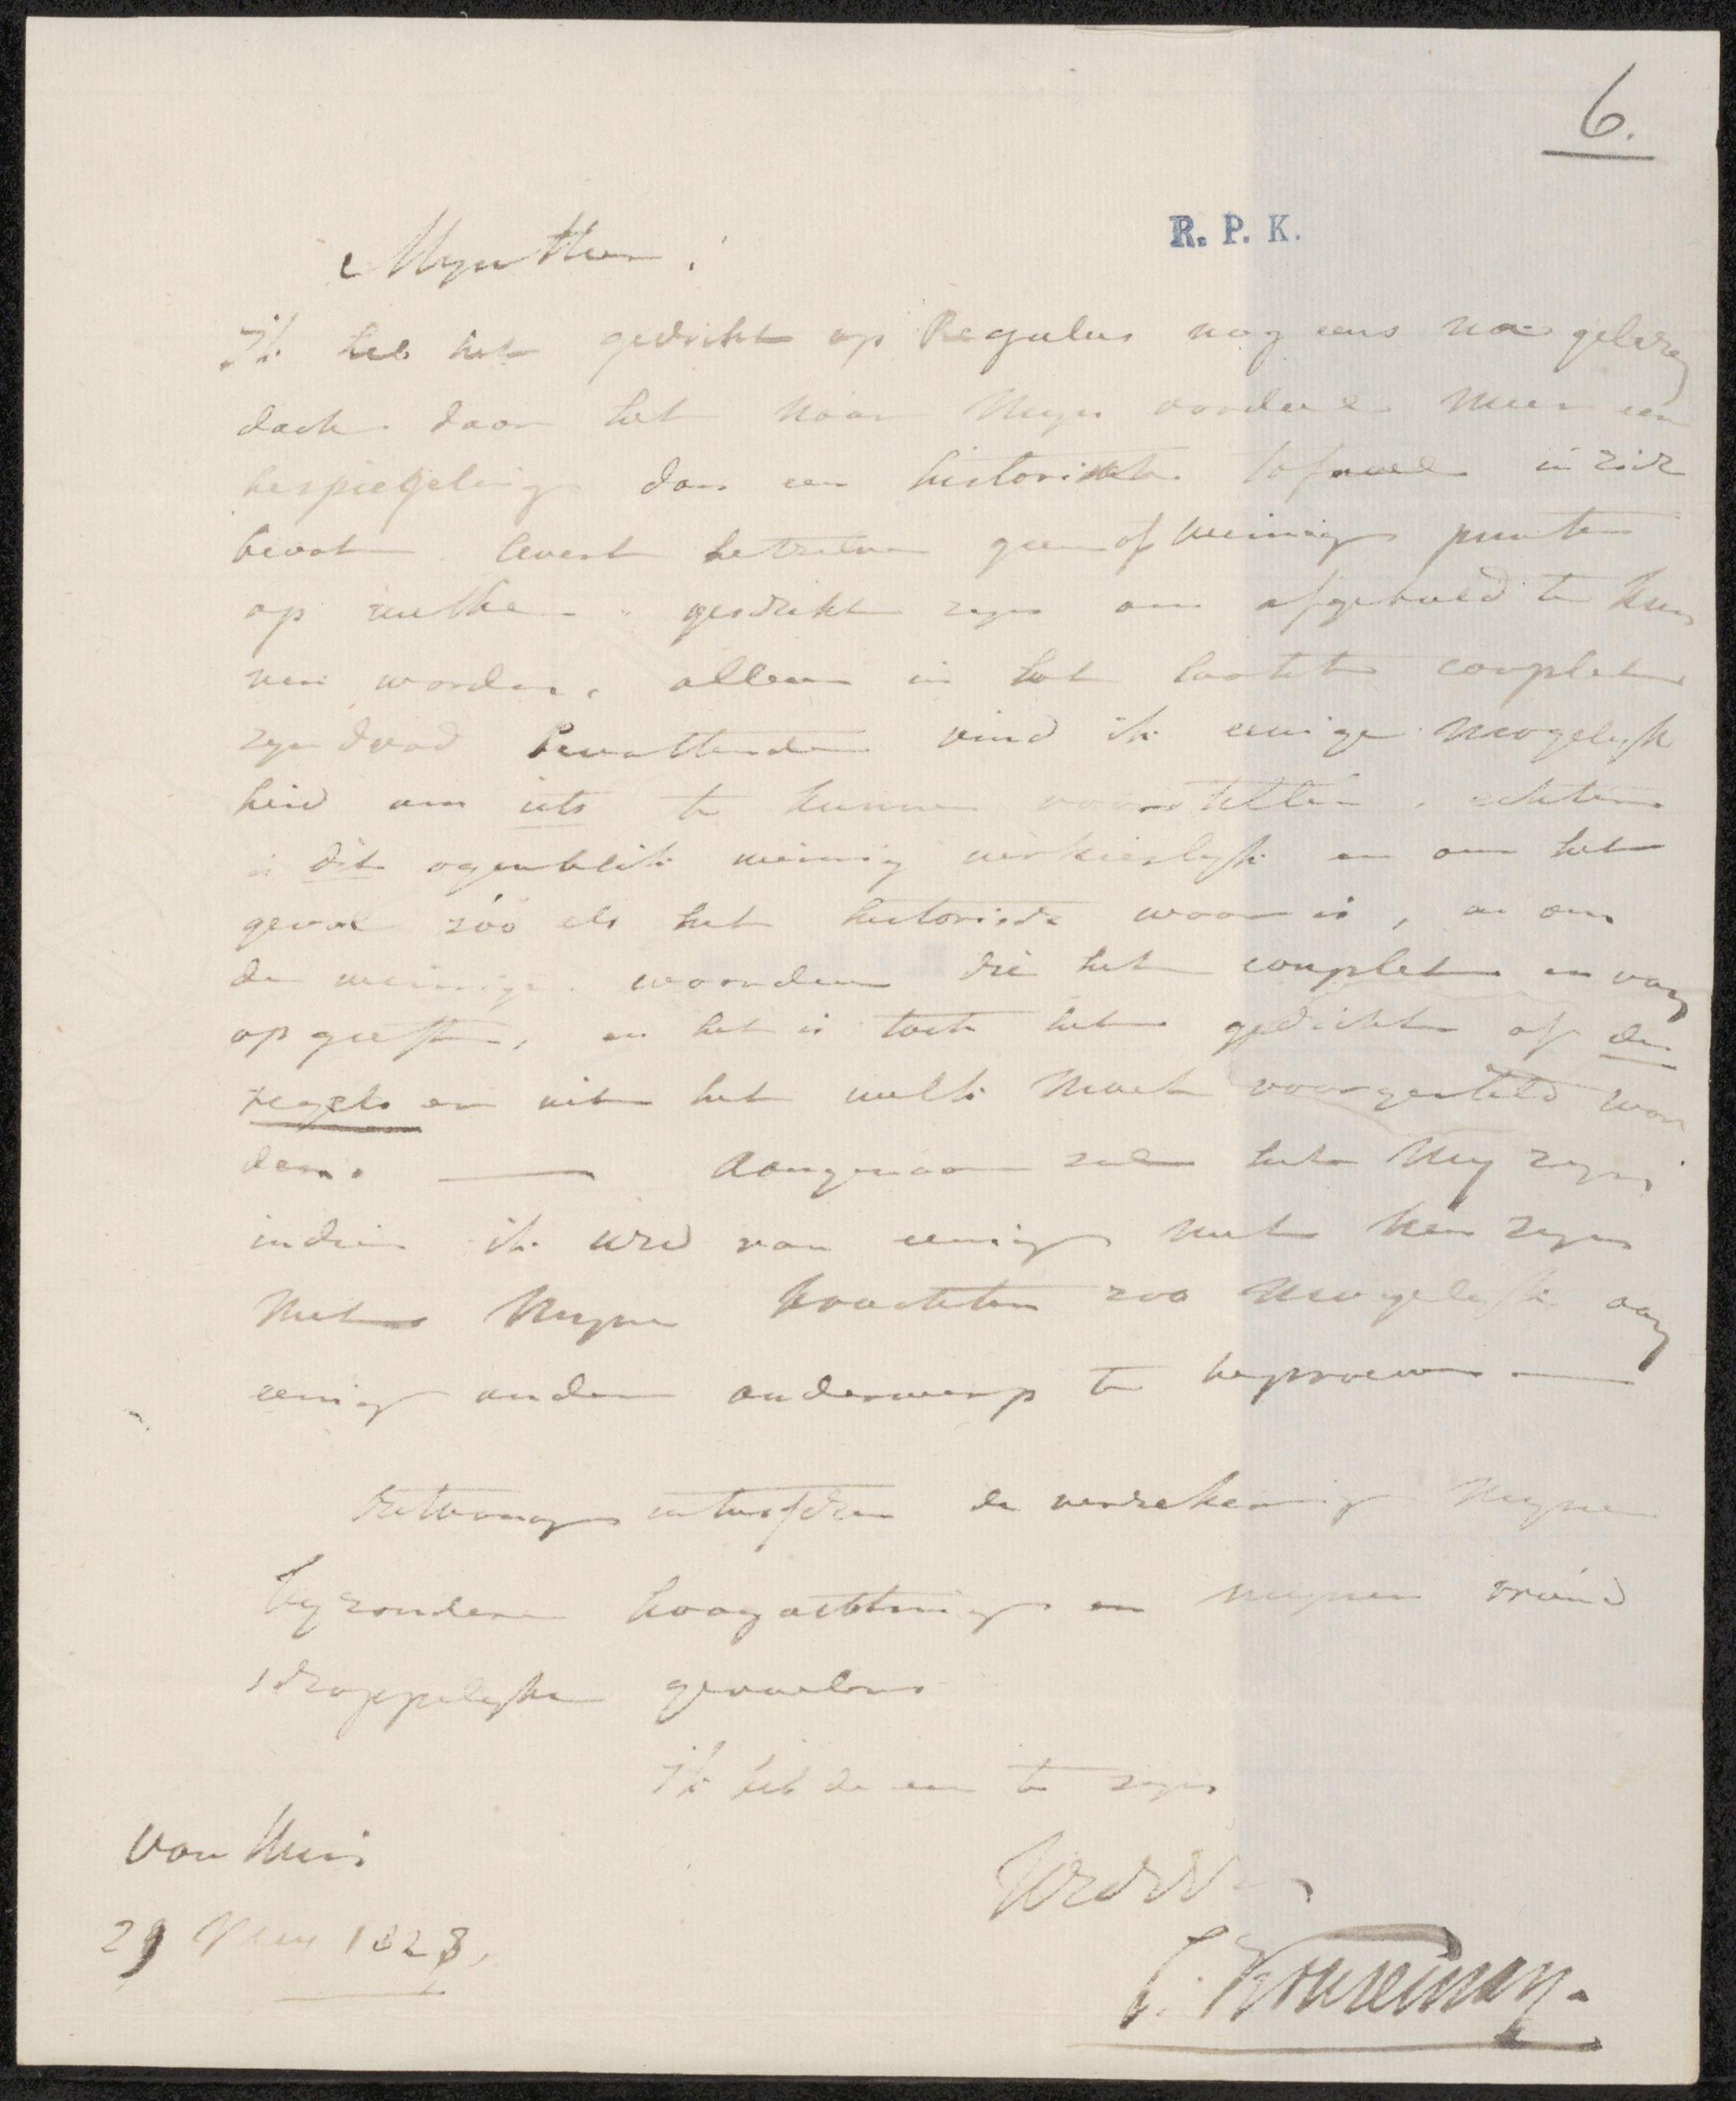 6.
R. P. K.
Myn Heer!
Ik heb het gedicht op Regulus nog eens na gelezen
doch daar het naar myn oordeel meer een
bespiegeling dan een historisch tafereel in zich
bevat levert hetzelve geen of weinig punten
op welke geschikt zyn om afgebeeld te kun
nen worden, alleen in het laatste couplet
zyn dood bevattende vind ik eenige mogelyk
heid om iets te kunnen voorstellen, echter
is dit ogenblik weinig verkieslyk en om het
geval zóó als het historisch waar is, en om
de weinige woorden die het couplet er van
op geeft, en het is toch het gedicht of de
regels er uit het welk moet voorgesteld wor
den. — Aangenaam zal het my zyn
indien ik UEd van eenig nut kan zyn
met myne krachten zoo mogelyk aan
eenig ander onderwerp te beproeven —
de verzekering myne
byzondere hoogachting en mynen vriend
schappelyke gevoelens
Ik heb de eer te zyn
van Huis
29 1828.
J. Kouseman.